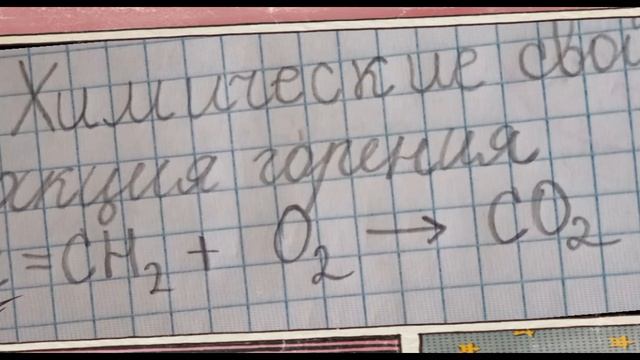 Химические свой
акция горения
=CH₂ + O₂ → CO₂